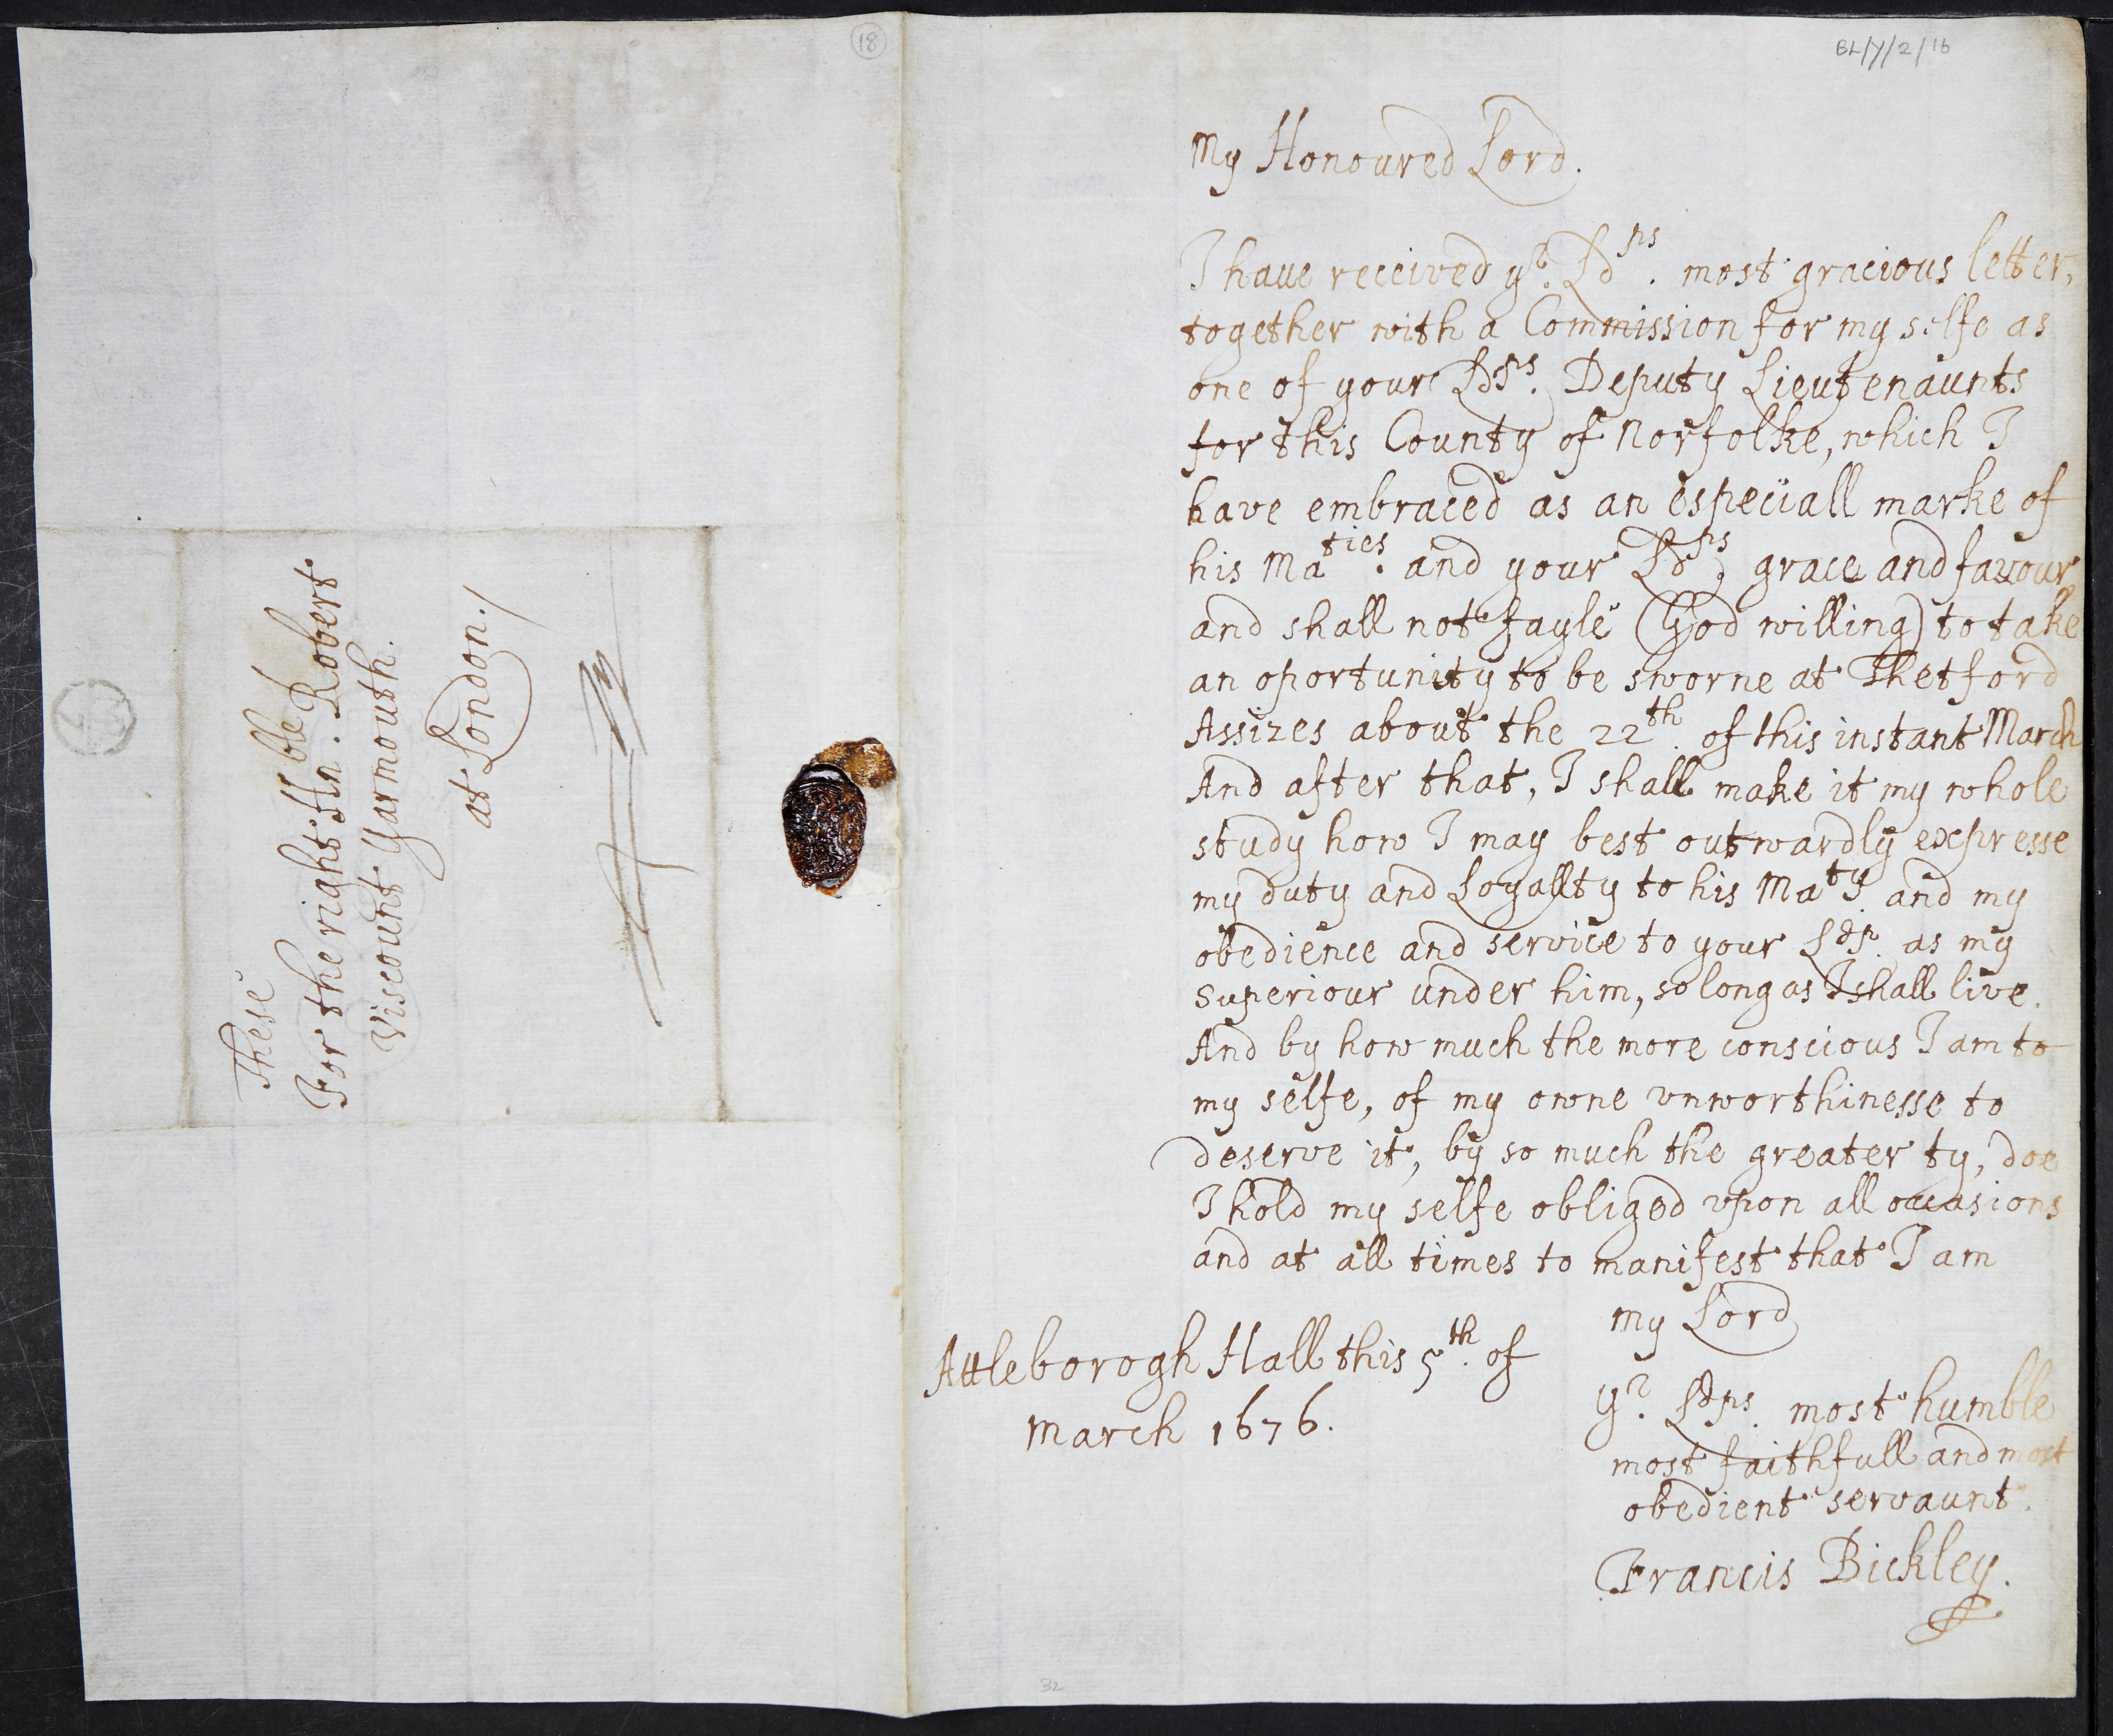 18
BL/Y/2/16
My Honoured Lord.
I haue received yr. Ldps. most gracious letter,
together with a Commission for my selfe as
one of your Ldps. Deputy Lieutenaunts
for this County of Norfolke, which I
have embraced as an especiall marke of
his Maties. and your Ldps grace and favour,
and shall not fayle (God willing) to take
an oportunity to be sworne at Thetford
Assizes about the 22th. of this instant March
And after that, I shall make it my whole
study how I may best outwardly expresse
my duty and Loyallty to his Maty. and my
obedience and service to your Ldp. as my
Superiour under him, so long as I shall live.
And by how much the more conscious I am to
my selfe, of my owne vnworthinesse to
deserve it, by so much the greater ty, doe
I hold my selfe obliged vpon all occasions
and at all times to manifest that I am
my Lord
yr. Ldps. most humble
most faithfull and most
obedient servaunt.
Francis Bickley.
Attleborogh Hall this 5th. of
March 1676.
These
For the right Hn.ble Robert
Viscount Yarmouth.
at London./
32